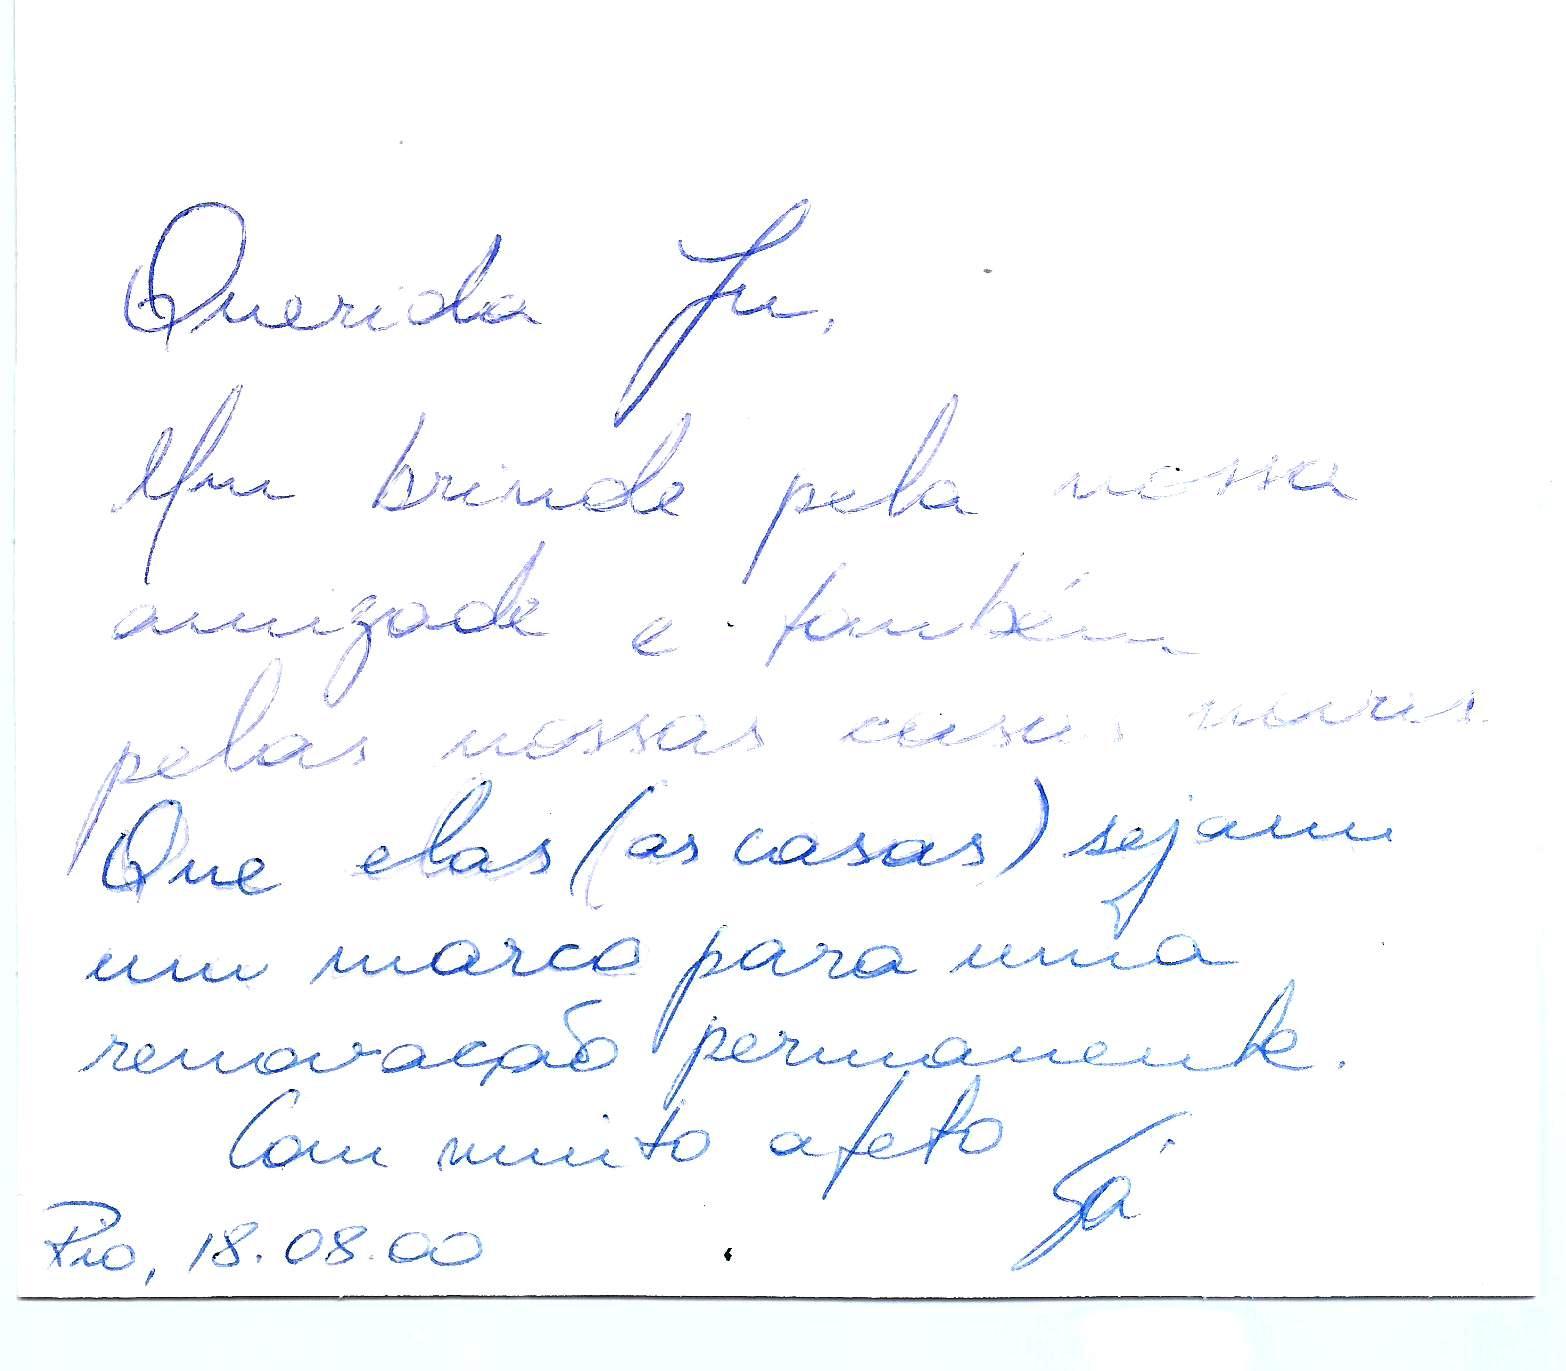 Querida Ju,
Um brinde pela nossa
amizade e também
pelas nossas casas novas.
Que elas (as casas) sejam
um marco para uma
renovação permanente.
Com muito afeto
Rio, 18.08.00